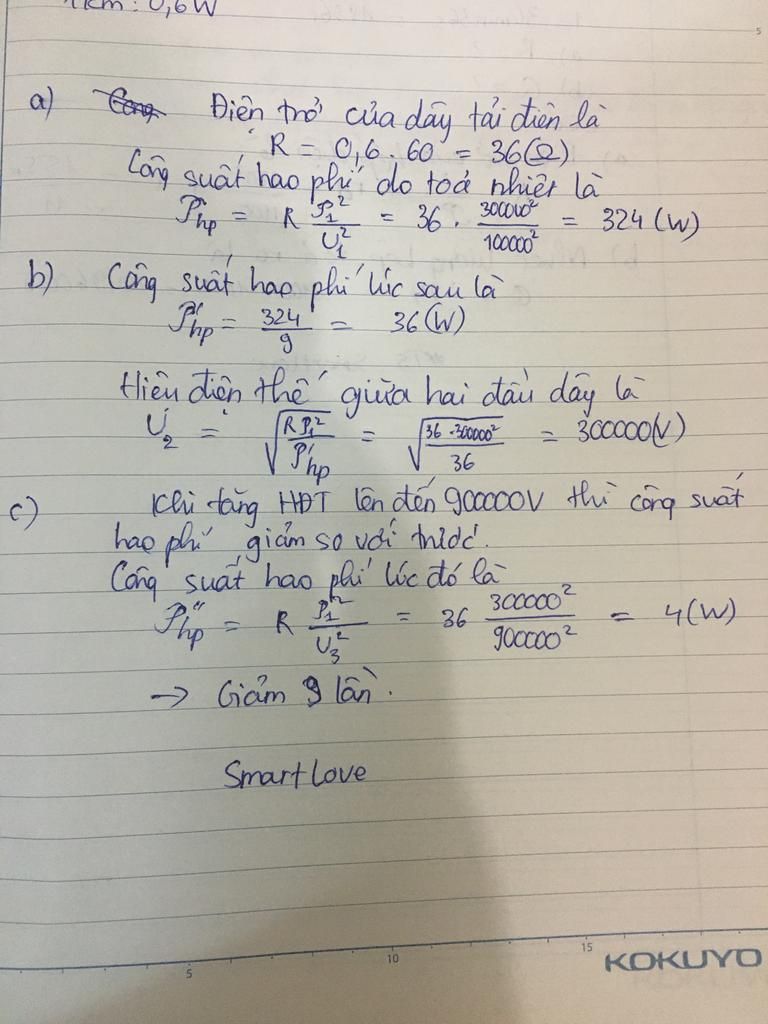 1km : 0,6W
a) Điện trở của dây tải điện là
R = 0,6 . 60 = 36(Ω)
Công suất hao phí do toả nhiệt là
P_hp = R P₁²/U₁² = 36 . 300000²/100000² = 324 (W)
b) Công suất hao phí lúc sau là
P'_hp = 324/9 = 36(W)
Hiệu điện thế giữa hai đầu dây là
U₂ = √(R P₁²/P'_hp) = √(36 . 300000²/36) = 300000(V)
c) Khi tăng HĐT lên đến 900000V thì công suất
hao phí giảm so với trước.
Công suất hao phí lúc đó là
P''_hp = R P₁²/U₃² = 36 300000²/900000² = 4(W)
→ Giảm 9 lần.
Smart Love
5
10
15
KOKUYO
5